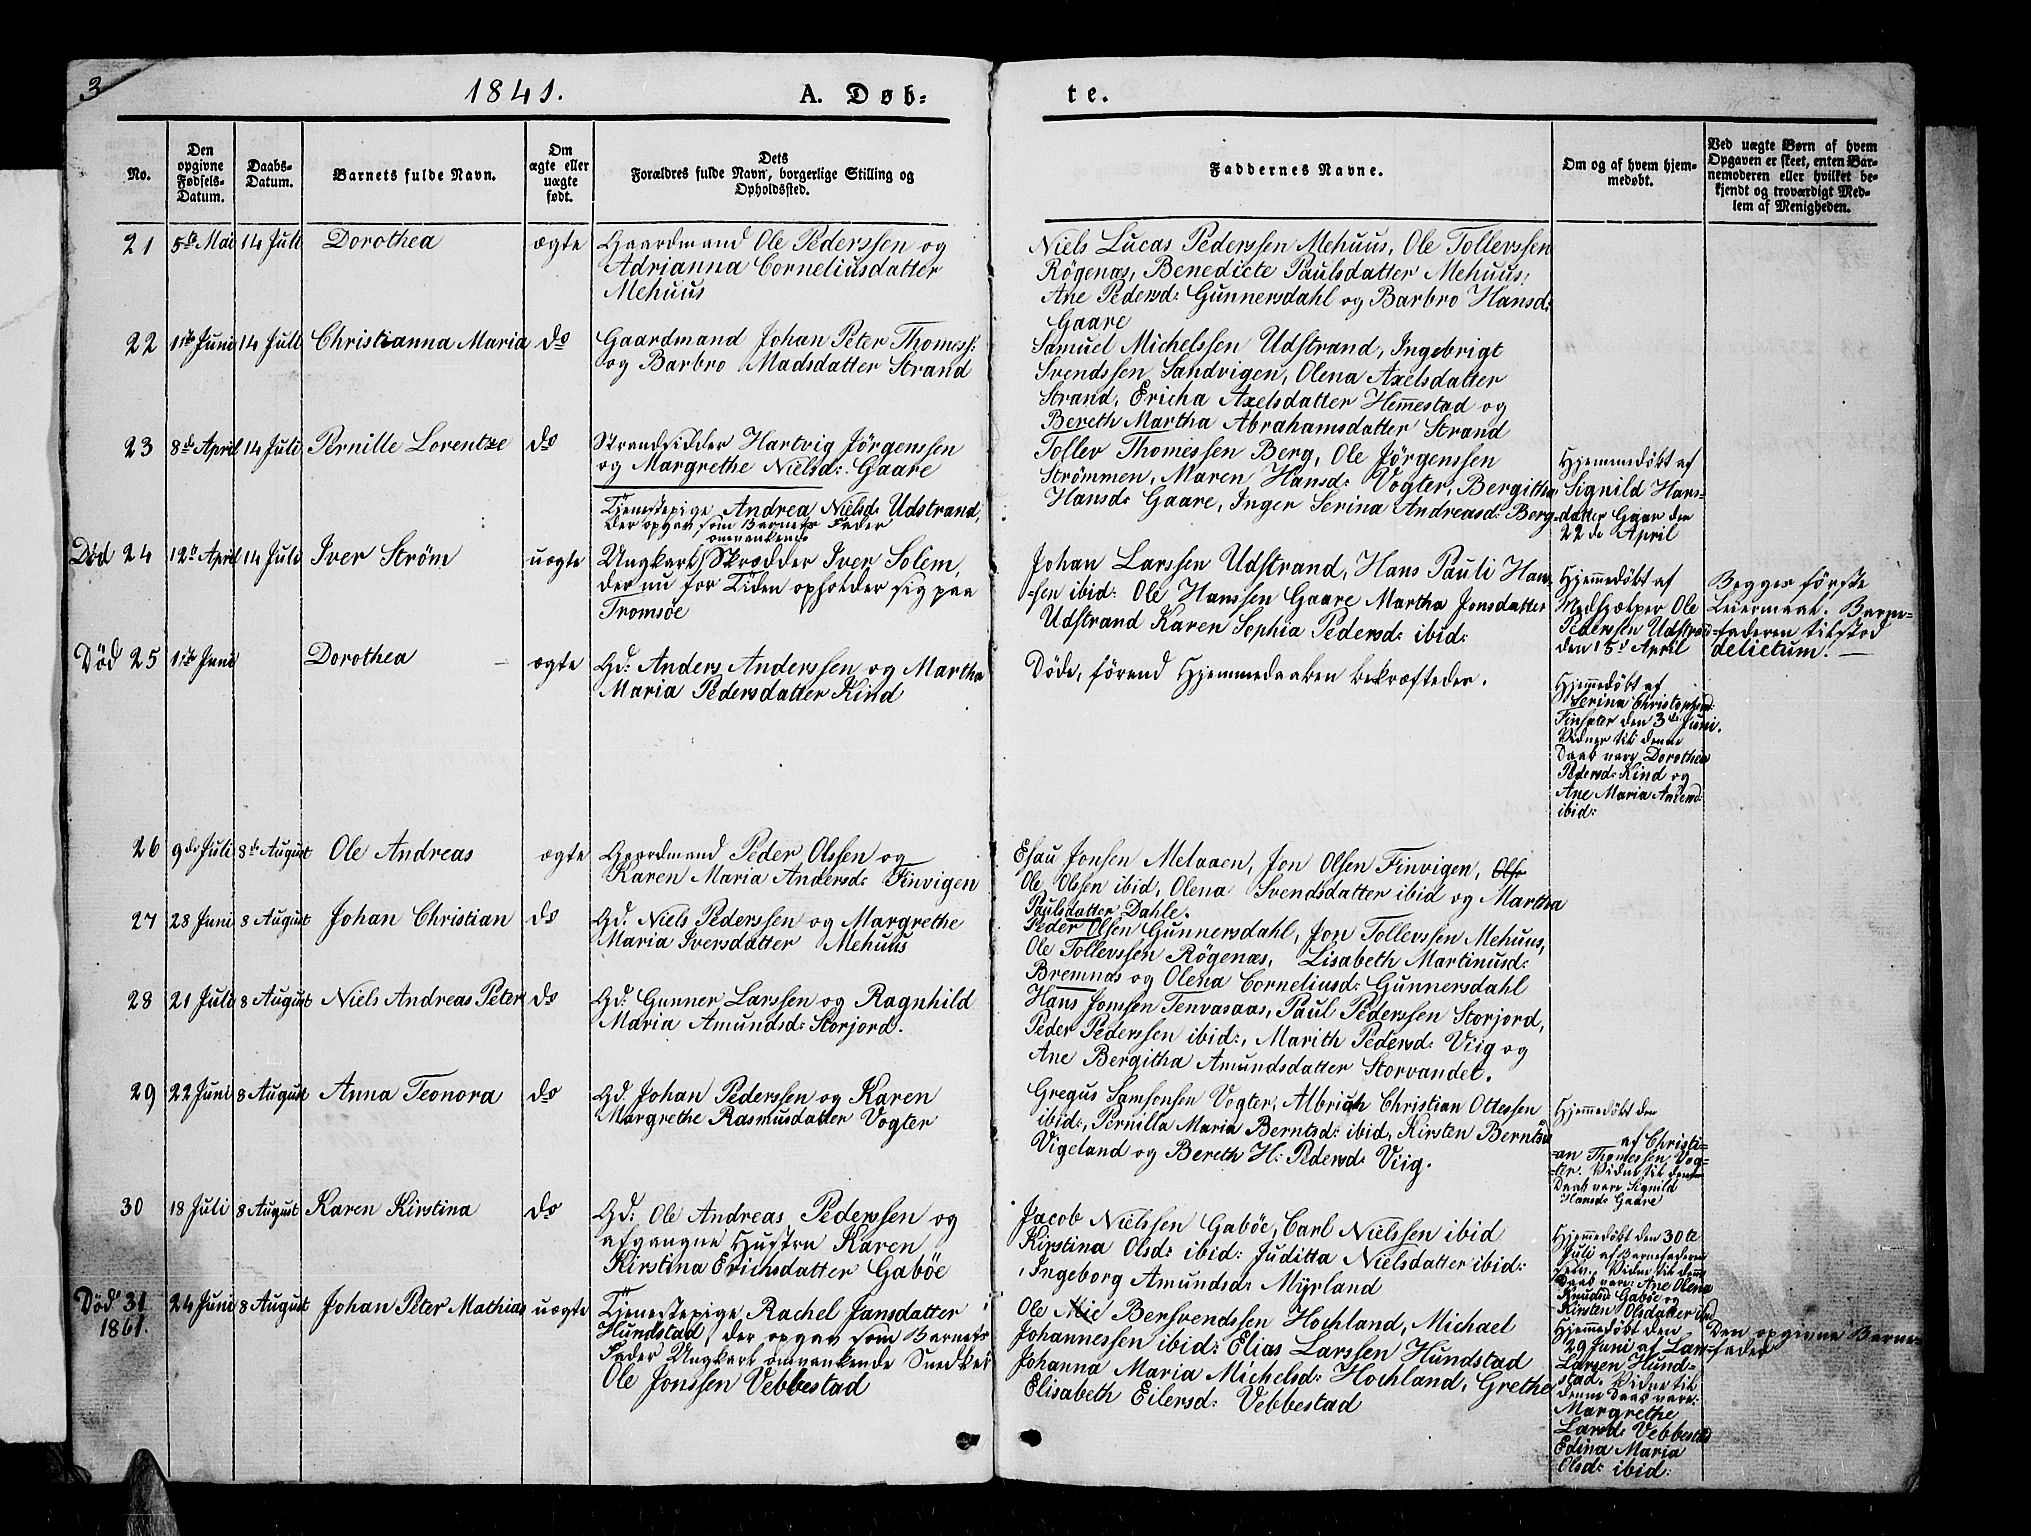 3
1841.
A. Døb-
te.
No.
Den opgivne Fødsels-Datum.
Daabs-Datum.
Barnets fulde Navn.
Om ægte eller uægte født.
Dets Forældres fulde Navn, borgerlige Stilling og Opholdssted.
Faddernes Navne.
Om og af hvem hjemmedøbt.
Ved uægte Børn af hvem Opgaven er skeet, enten Barnemoderen eller hvilket bekjendt og troværdigt Medlem af Menigheden.
21 5te Mai 14 Juli Dorothea ægte Gaardmand Ole Pederssen og
Adrianna Corneliusdatter
Mehuus
Niels Lucas Pederssen Mehuus, Ole Tollevssen
Røgenæs, Benedicte Paulsdatter Mehuus,
Ane Pedersd: Gunnersdahl og Barbro Hansd:
Gaare
22 1ste Juni 14 Juli Christianna Maria do Gaardmand Johan Peter Thomess:
og Barbro Madsdatter Strand
Samuel Michelssen Udstrand, Ingebrigt
Svendssen Sandvigen, Olena Axelsdatter
Strand, Ericha Axelsdatter Hemmestad og
Bereth Martha Abrahamsdatter Strand
23 8de April 14 Juli Pernille Lorentze do Strandsidder Hartvig Jörgenssen
og Margrethe Nielsd: Gaare
Tollev Thomessen Berg, Ole Jörgenssen
Strömmen, Maren Hansd: Vogter, Bergitha
Hansd: Gaare, Inger Serina Andreasd: Berg
Hjemmedöbt af
Signild Hans-
datter Gaare den
22de April
Tjenestepige Andrea Nielsd: Udstrand,
der opgav som Barnets Fader
omvankende
Död 24 12te April 14 Juli Iver Ström uægte Ungkarl Skrædder Iver Solem,
der nu for Tiden opholder sig paa
Tromsöe
Johan Larssen Udstrand, Hans Pauli Han-
sen ibid: Ole Hanssen Gaare Martha Jonsdatter
Udstrand Karen Sophia Pedersd: ibid:
Hjemmedöbt af
Medhjælper Ole
Pederssen Udstrand
den 15de April
Begges förste
Leiermaal. Barne-
faderen tilstod
delictum.
Död 25 1ste Juni Dorothea - ægte Gd: Anders Anderssen og Martha
Maria Pedersdatter Kind
Döde, förend Hjemmedaaben bekræftedes.
Hjemmedöbt af
Serina Christophersd:
Finsæter den 3de Juni.
Vidner til denne
Daab vare Dorothea
Pedersd: Kind og
Ane Maria Andersd:
ibid:
26 9de Juli 8de August Ole Andreas ægte Gaardmand Peder Olssen og
Karen Maria Andersd: Finvigen
Esau Jonsen Melaaen, Jon Olsen Finvigen,
Ole Olssen ibid, Olena Svendsdatter ibid og Martha
Paulsdatter Dahle.
27 28 Juni 8 August Johan Christian do Gd. Niels Pederssen og Margrethe
Maria Iversdatter Mehuus
Peder Olsen Gunnersdahl, Jon Tollevssen Mehuus,
Ole Tollevssen Røgenæs, Lisabeth Martinusd:
Bremnæs og Olena Corneliusd: Gunnersdahl
28 21 Juli 8 August Niels Andreas Peter do Gd: Gunner Larssen og Ragnhild
Maria Amundsd: Storjord.
Hans Jonssen Tenvasaas, Paul Pederssen Storjord,
Peder Pederssen ibid:, Marith Pedersd: Viig og
Ane Bergitha Amundsdatter Storvandet.
29 22 Juni 8 August Anna Teonora do Gd. Johan Pederssen og Karen
Margrethe Rasmusdatter Vogter
Gregus Samsonsen Vogter, Albrigh Christian Ottessen
ibid:, Pernilla Maria Berntsd: ibid, Kirsten Berntsd:
Vigeland og Bereth H: Pedersd: Viig.
Hjemmedöbt den
af Christi-
an Thomessen Vog-
ter. Vidne til denne
Daab vare Signild
Hansd: Gaare
30 18 Juli 8 August Karen Kirstina do Gd: Ole Andreas Pederssen og
afgangne Hustru Karen
Kirstina Ericsdatter Gaböe
Jacob Nielssen Gaböe, Carl Nielssen ibid
Kirstina Olsd: ibid: Juditta Nielsdatter ibid:
Ingeborg Amundsd: Myrland
Hjemmedöbt den 30te
Juli af Barnefaderen
selv. Vidne til denne
Daab vare: Ane Olena
Knudsd Gaböe og
Kirsten Olsdatter ibid
Död 31 24 Juni 8 August Johan Peter Mathias uægte Tjenestepige Rachel Jansdatter
1861.
Hundstad, der opgav som Barnets
Fader Ungkarl omvankende Snedker
Ole Jonssen Vebbestad
Ole Mic Bersvendssen Hochland, Michael
Johannessen ibid: Elias Larssen Hundstad
Johanna Maria Michelsd: Hochland, Grethe
Elisabeth Eilersd: Vebbestad
Hjemmedöbt den
29 Juni af Lars
Larsen Hund-
stad. Vidne til
denne Daab vare:
Margrethe
Larsd: Vebbestad
Edina Maria
Olsd: ibid:
Den opgivne Barne-
fader